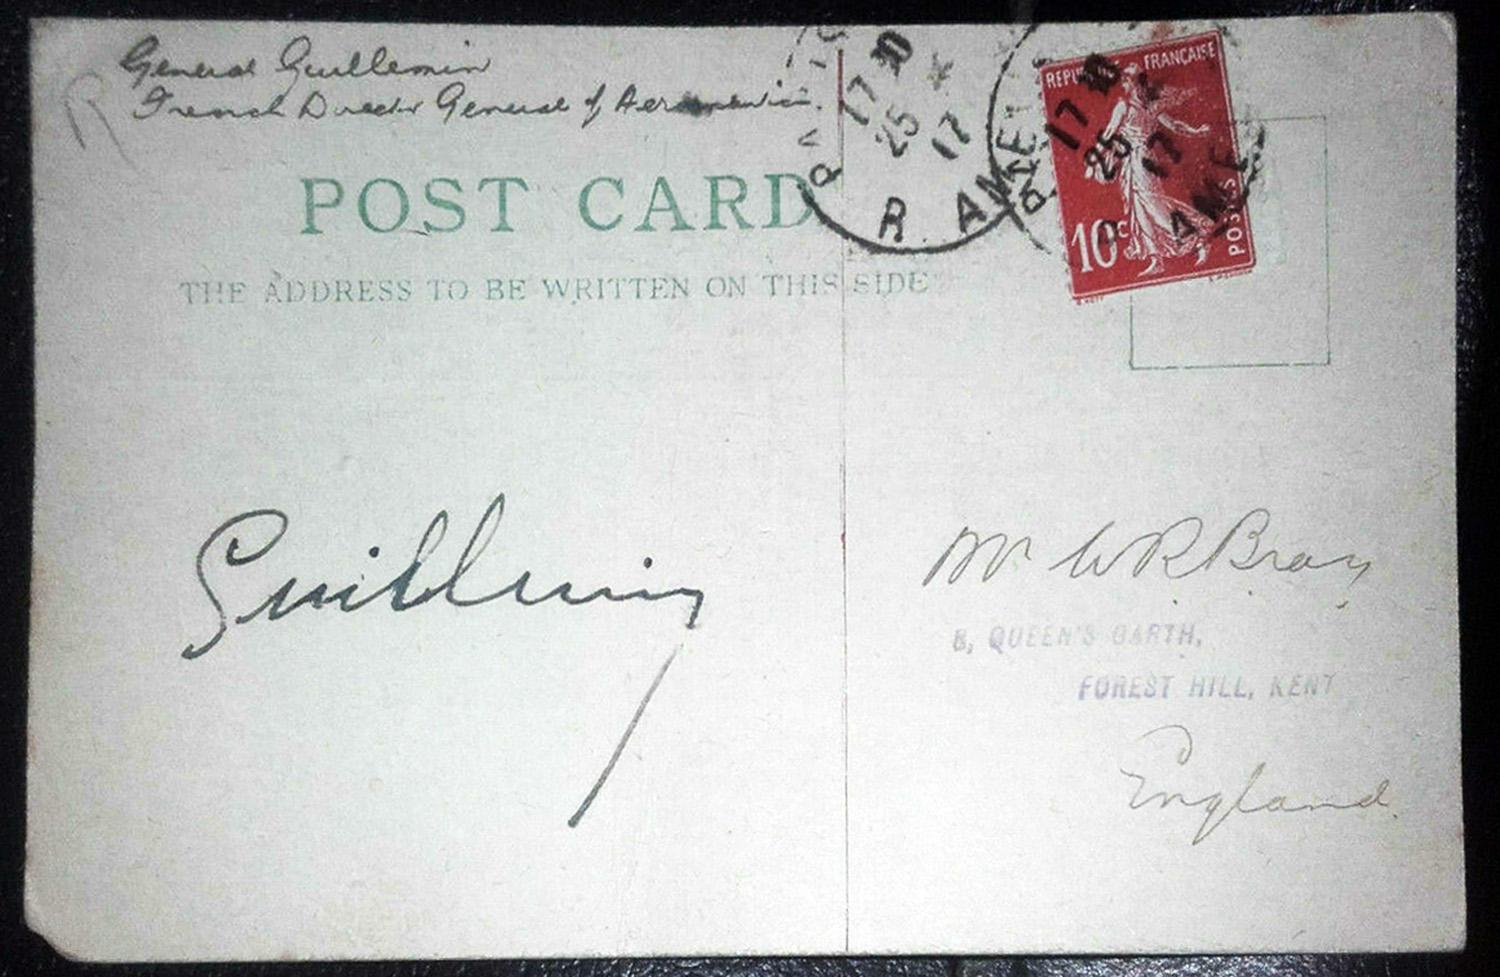 General Guillemin
French Director General of Aeronautics.
R
POST CARD
THE ADDRESS TO BE WRITTEN ON THIS SIDE
17 30
25
17
R. AMEL
REPUBLIQUE FRANÇAISE
10c
POSTES
17 30
25
17
AME
Guillemin
Mr W R Bray
8, QUEEN'S GARTH,
FOREST HILL, KENT
England